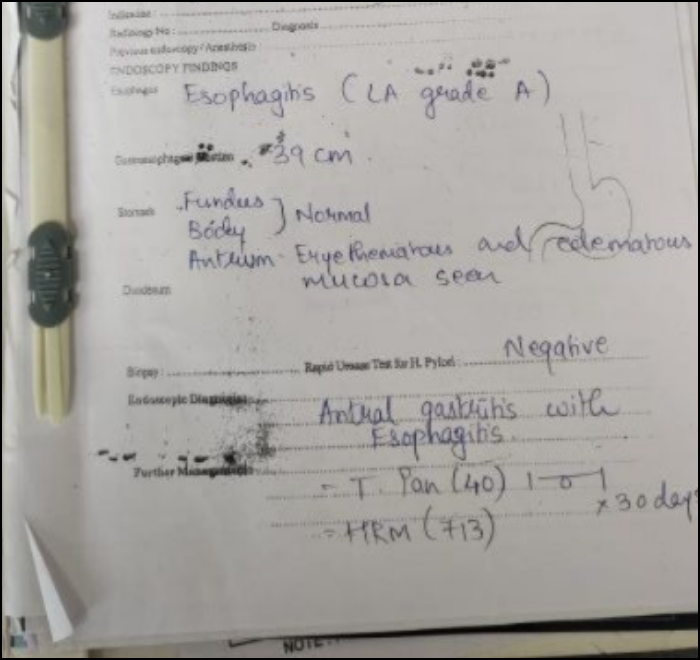 Indication :
Radiology No : Diagnosis
Previous endoscopy / Anesthesia :
ENDOSCOPY FINDINGS
Esophagus Esophagitis (LA grade A)
39 cm.
Stomach Fundus } Normal
Body
Antrum - Eryethematous and edematous
mucosa seen
Duodenum
Biopsy : Rapid Urease Test for H. Pylori : Negative
Endoscopic Diagnosis
Antral gastritis with
Esophagitis.
Further Management
- T. Pan (40) 1-0-1
x 30 days
- HRM (713)
NOTE